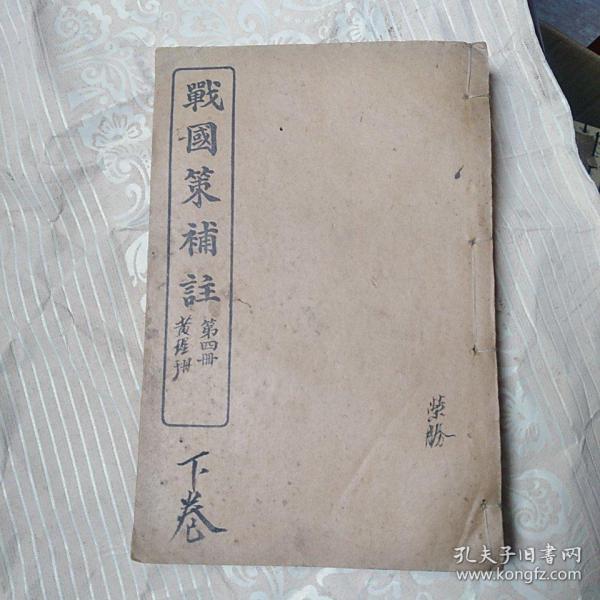 戰國策補註
第四冊
下卷
榮勝
孔夫子旧书网
www.kongfz.com